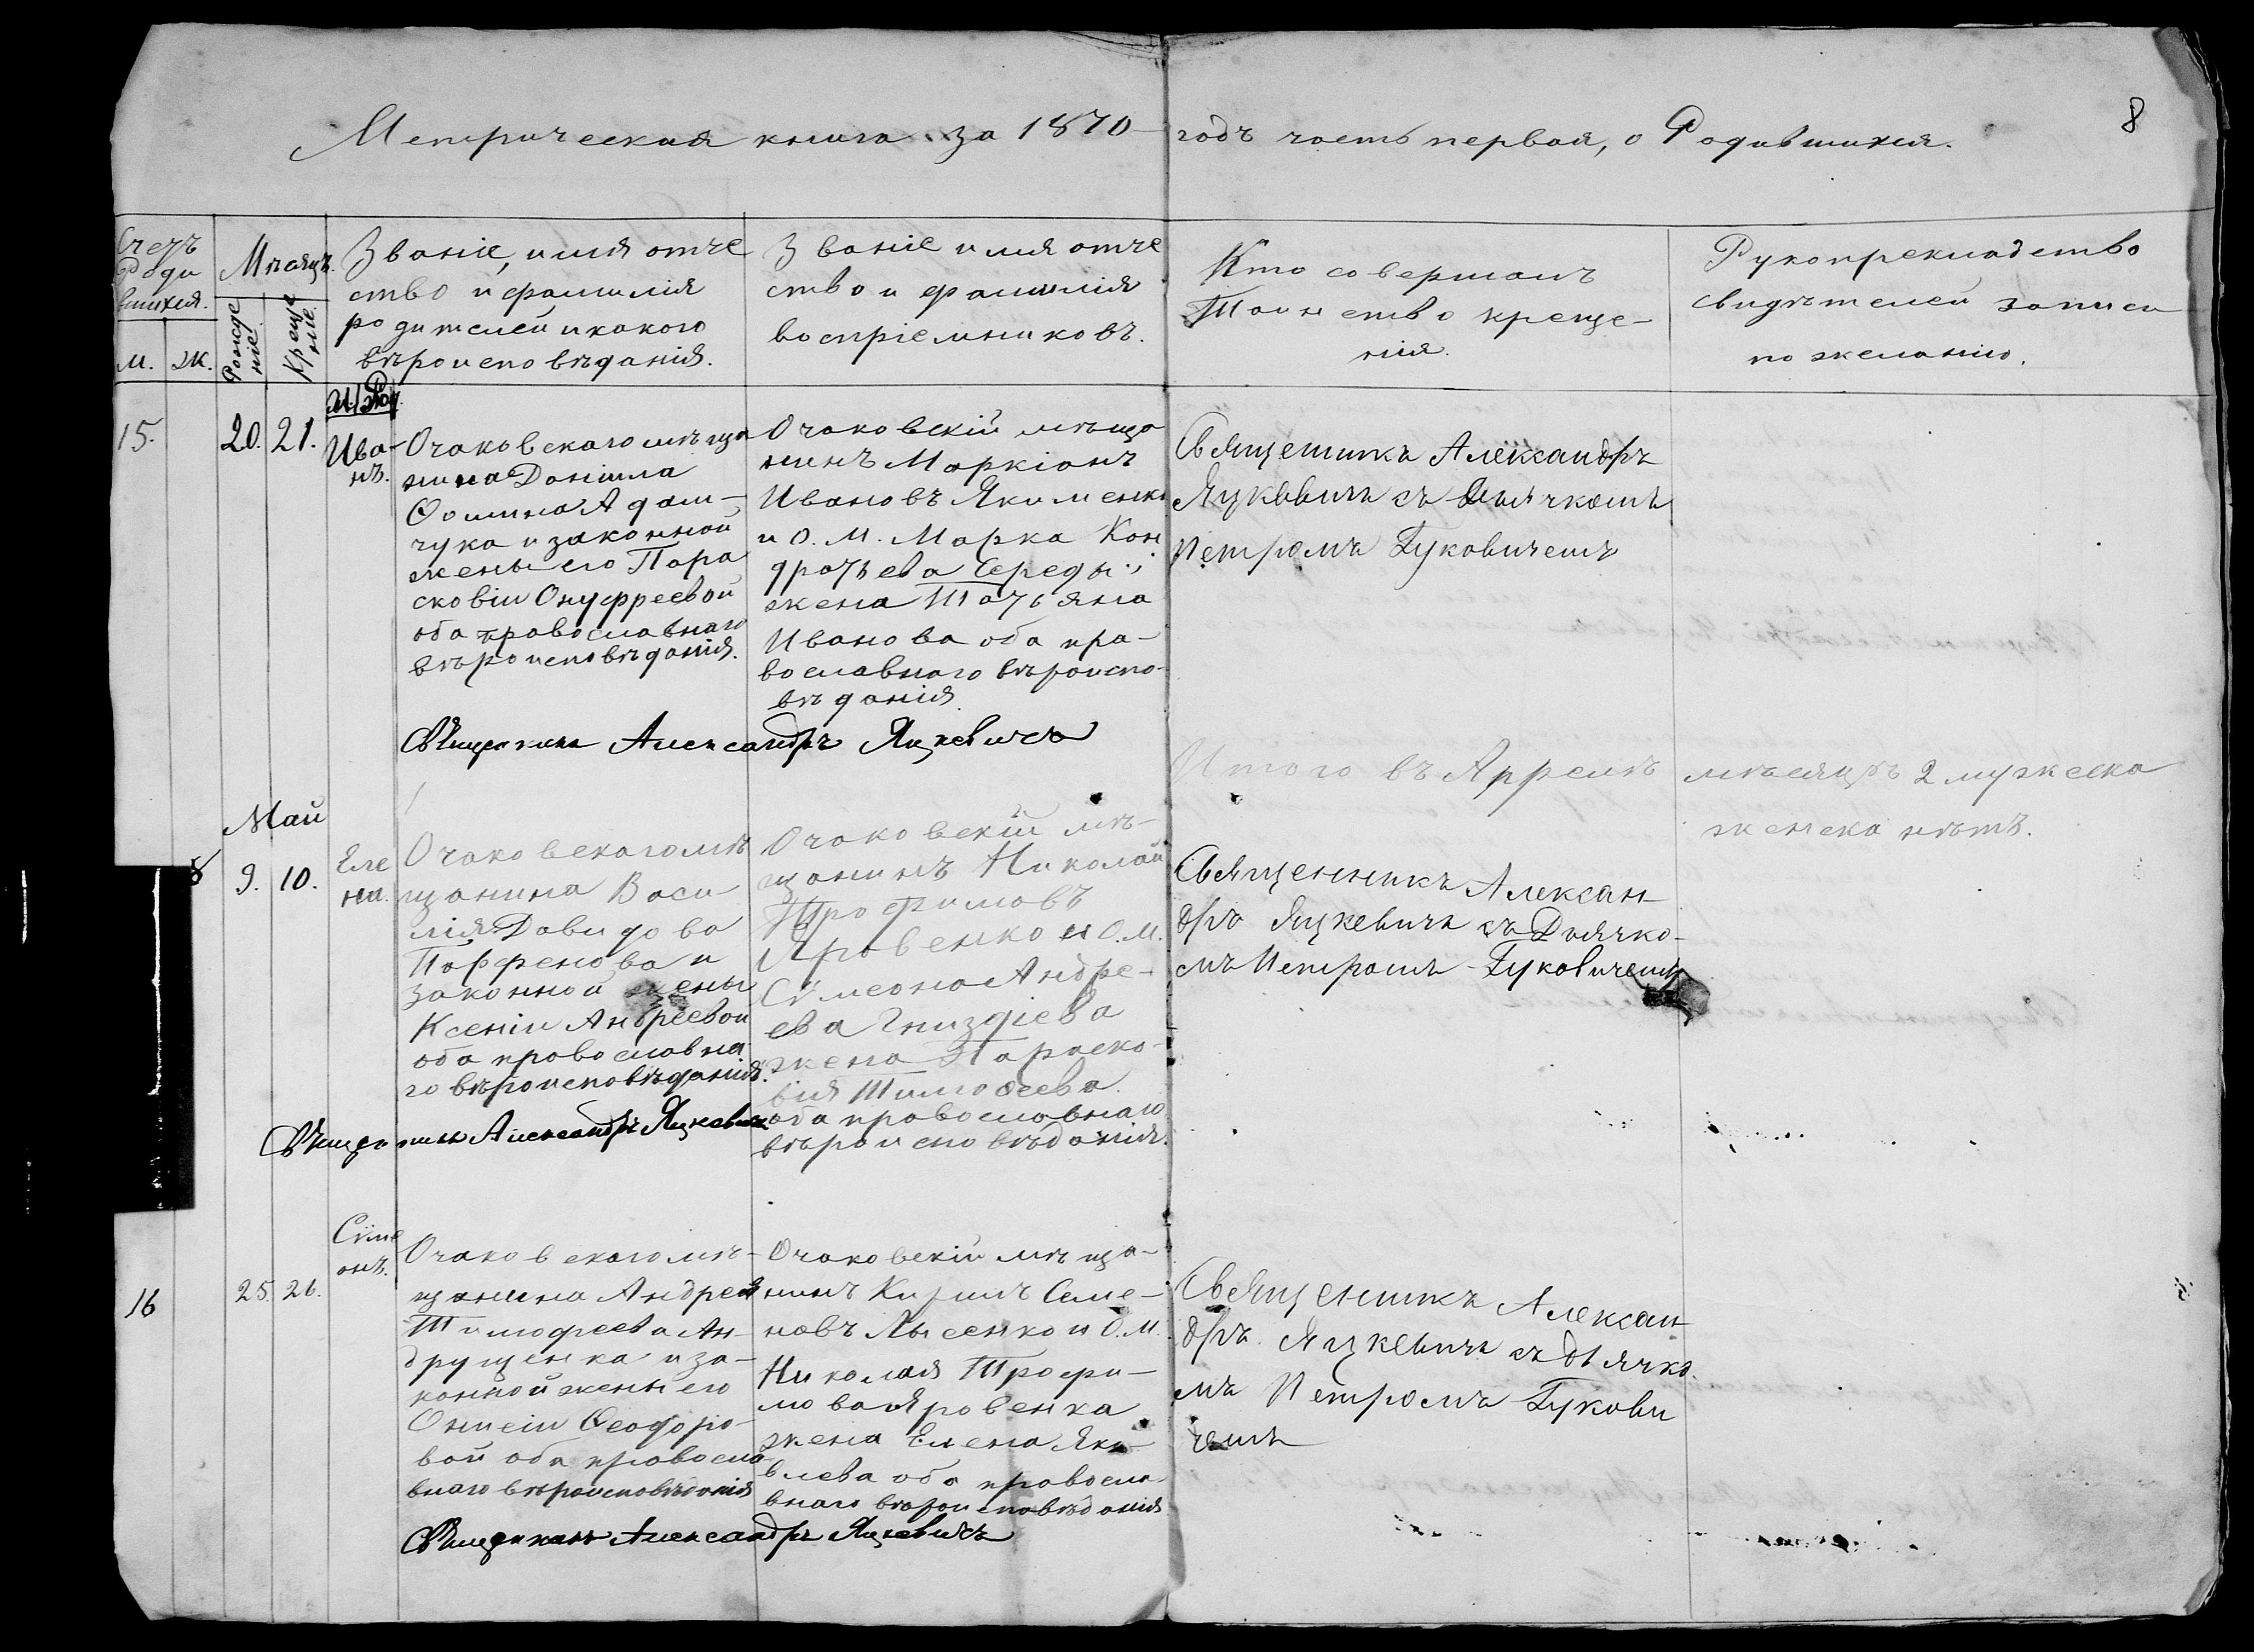 8
Метрическая книга за 1870 годъ часть первая, о Родившихся.
Счетъ
Роди
вшихся.
м. ж.
Мѣсяцъ.
Рожде
ніе.
Креще
ніе.
Званіе, имя отче
ство и фамилія
родителей и какого
вѣроисповѣданія.
Званіе имя отче
ство и фамилія
воспріемниковъ.
Кто совершалъ
Таинство креще-
нія.
Рукоприкладство
свидѣтелей записи
по желанію.
15.
20. 21.
Ива-
нъ.
Очаковскаго мѣща
нина Даніила
Ѳомина Адам-
чука и законной
жены его Пара
сковіи Онуфреевой
оба православнаго
вѣроисповѣданія.
Очаковскій мѣща
нинъ Маркіанъ
Ивановъ Якименко
и О. М. Марка Кон
дратьева Середы
жена Татьяна
Иванова оба пра-
вославнаго вѣроиспо-
вѣданія.
Священникъ Александръ
Яцкевичъ съ Дьячкомъ
Петромъ Гуковичемъ
Священникъ Александръ Яцкевичъ
Итого въ Апрелѣ мѣсяцѣ 2 мужеска
женска нѣтъ.
Май
9. 10.
Еле
на.
Очаковскаго мѣ
щанина Васи
лія Давидова
Парфенова и
законной жены
Ксеніи Андреевой
оба православна
го вѣроисповѣданія.
Очаковскій мѣ-
щанинъ Николай
Трофимовъ
Яровенко и О. М.
Сѵмеона Андре-
ева Гниздіева
жена Параско-
вія Тимоѳеева
оба православнаго
вѣроисповѣданія.
Священникъ Алексан-
дръ Яцкевичъ съ Дьячко-
мъ Петромъ Гуковичемъ
Священникъ Александръ Яцкевичъ
16
25. 26.
Сѵме
онъ.
Очаковскаго мѣ-
щанина Андрея
Тимофеева Ан-
друщенка и за-
конной жены его
Онисіи Ѳеодоро-
вой оба правосла
внаго вѣроисповѣданія
Очаковскій мѣща-
нинъ Кирилъ Семе-
новъ Лысенко и О. М.
Николая Трофи-
мова Яровенка
жена Елена Яко-
влева оба правосла-
внаго вѣроисповѣданія
Священникъ Алексан
дръ Яцкевичъ съ дьячко.
мъ Петромъ Гукови
чемъ
Священникъ Александръ Яцкевичъ